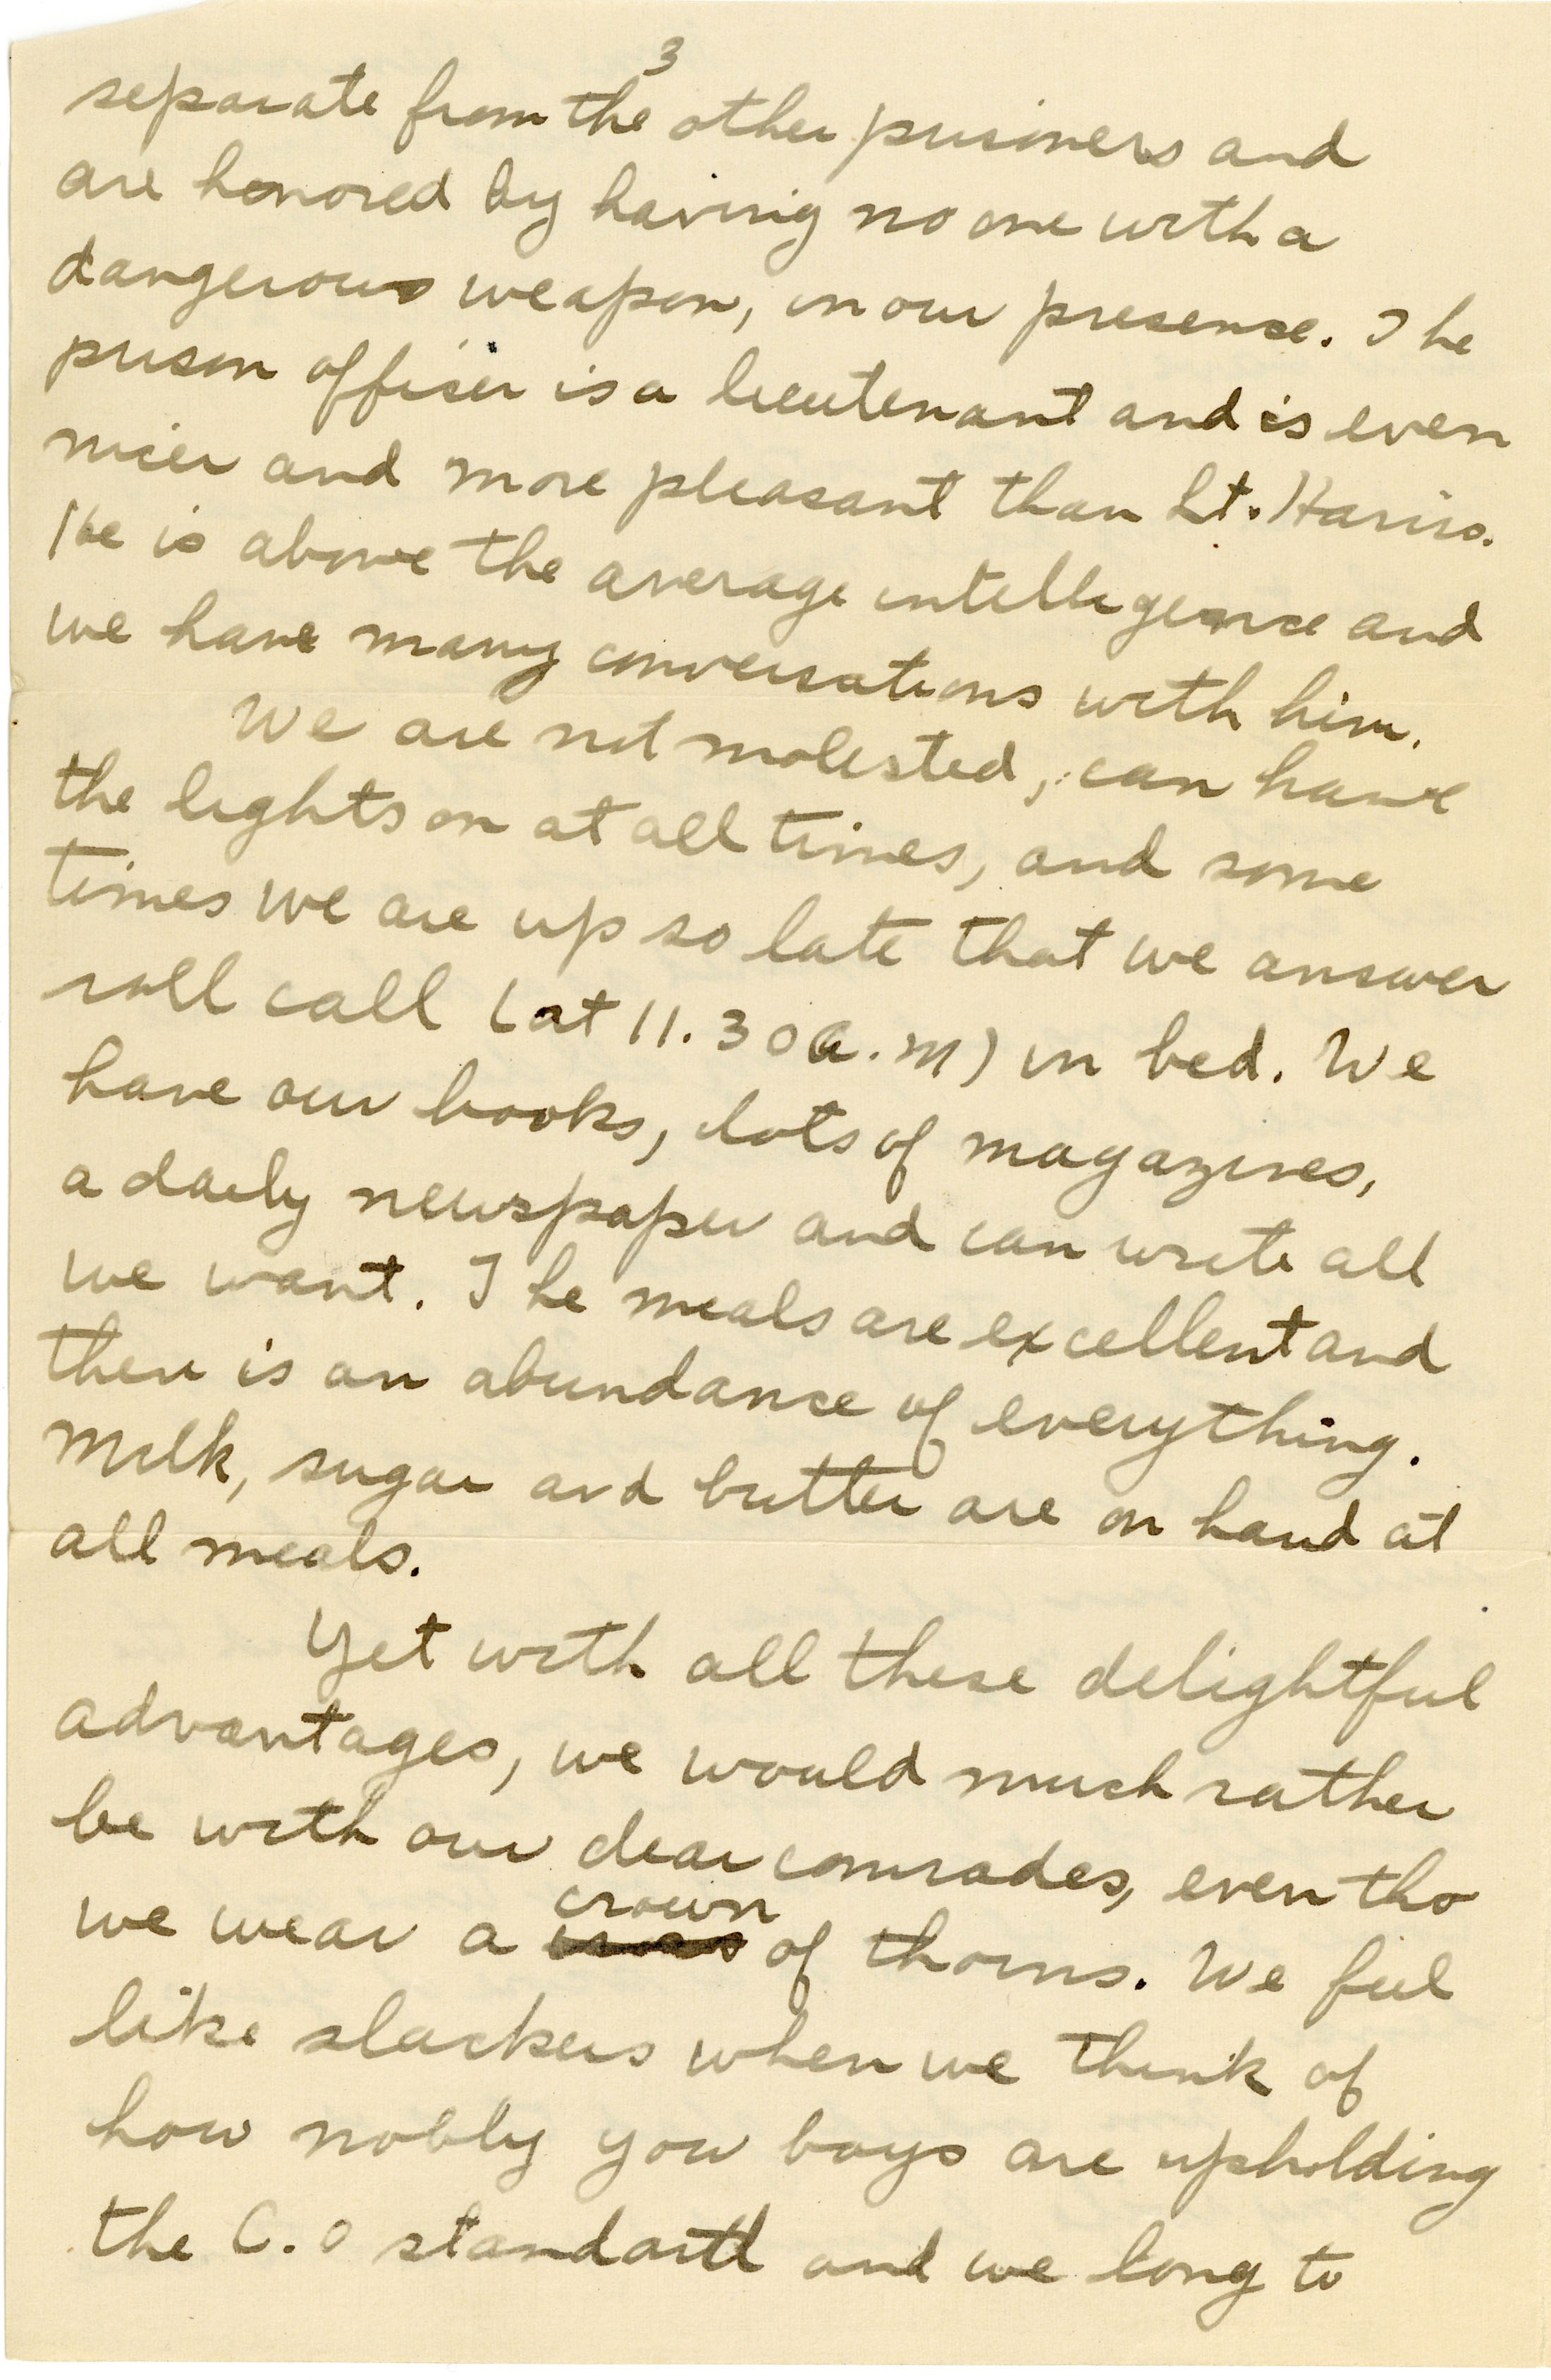 3
separate from the other prisoners and
are honored by having no one with a
dangerous weapon, in our presence. The
prison officer is a lieutenant and is even
nicer and more pleasant than Lt. Harris.
He is above the average intelligence and
we have many conversations with him.
We are not molested, can have
the lights on at all times, and some
times we are up so late that we answer
roll call (at 11.30 a.m) in bed. We
have our books, lots of magazines,
a daily newspaper and can write all
we want. The meals are excellent and
there is an abundance of everything.
Milk, sugar and butter are on hand at
all meals.
Yet with all these delightful
advantages, we would much rather
be with our dear comrades, even tho
we wear a crown of thorns. We feel
like slackers when we think of
how nobly you boys are upholding
the C.O standard and we long to